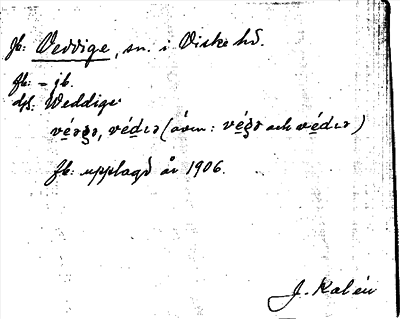 fb: Veddige, sn. i Viske hd.
fb: - jb.
dpf: Weddige
védgə, védıə (även: végə och védıə)
fb: upplagd år 1906.
J. Kalén